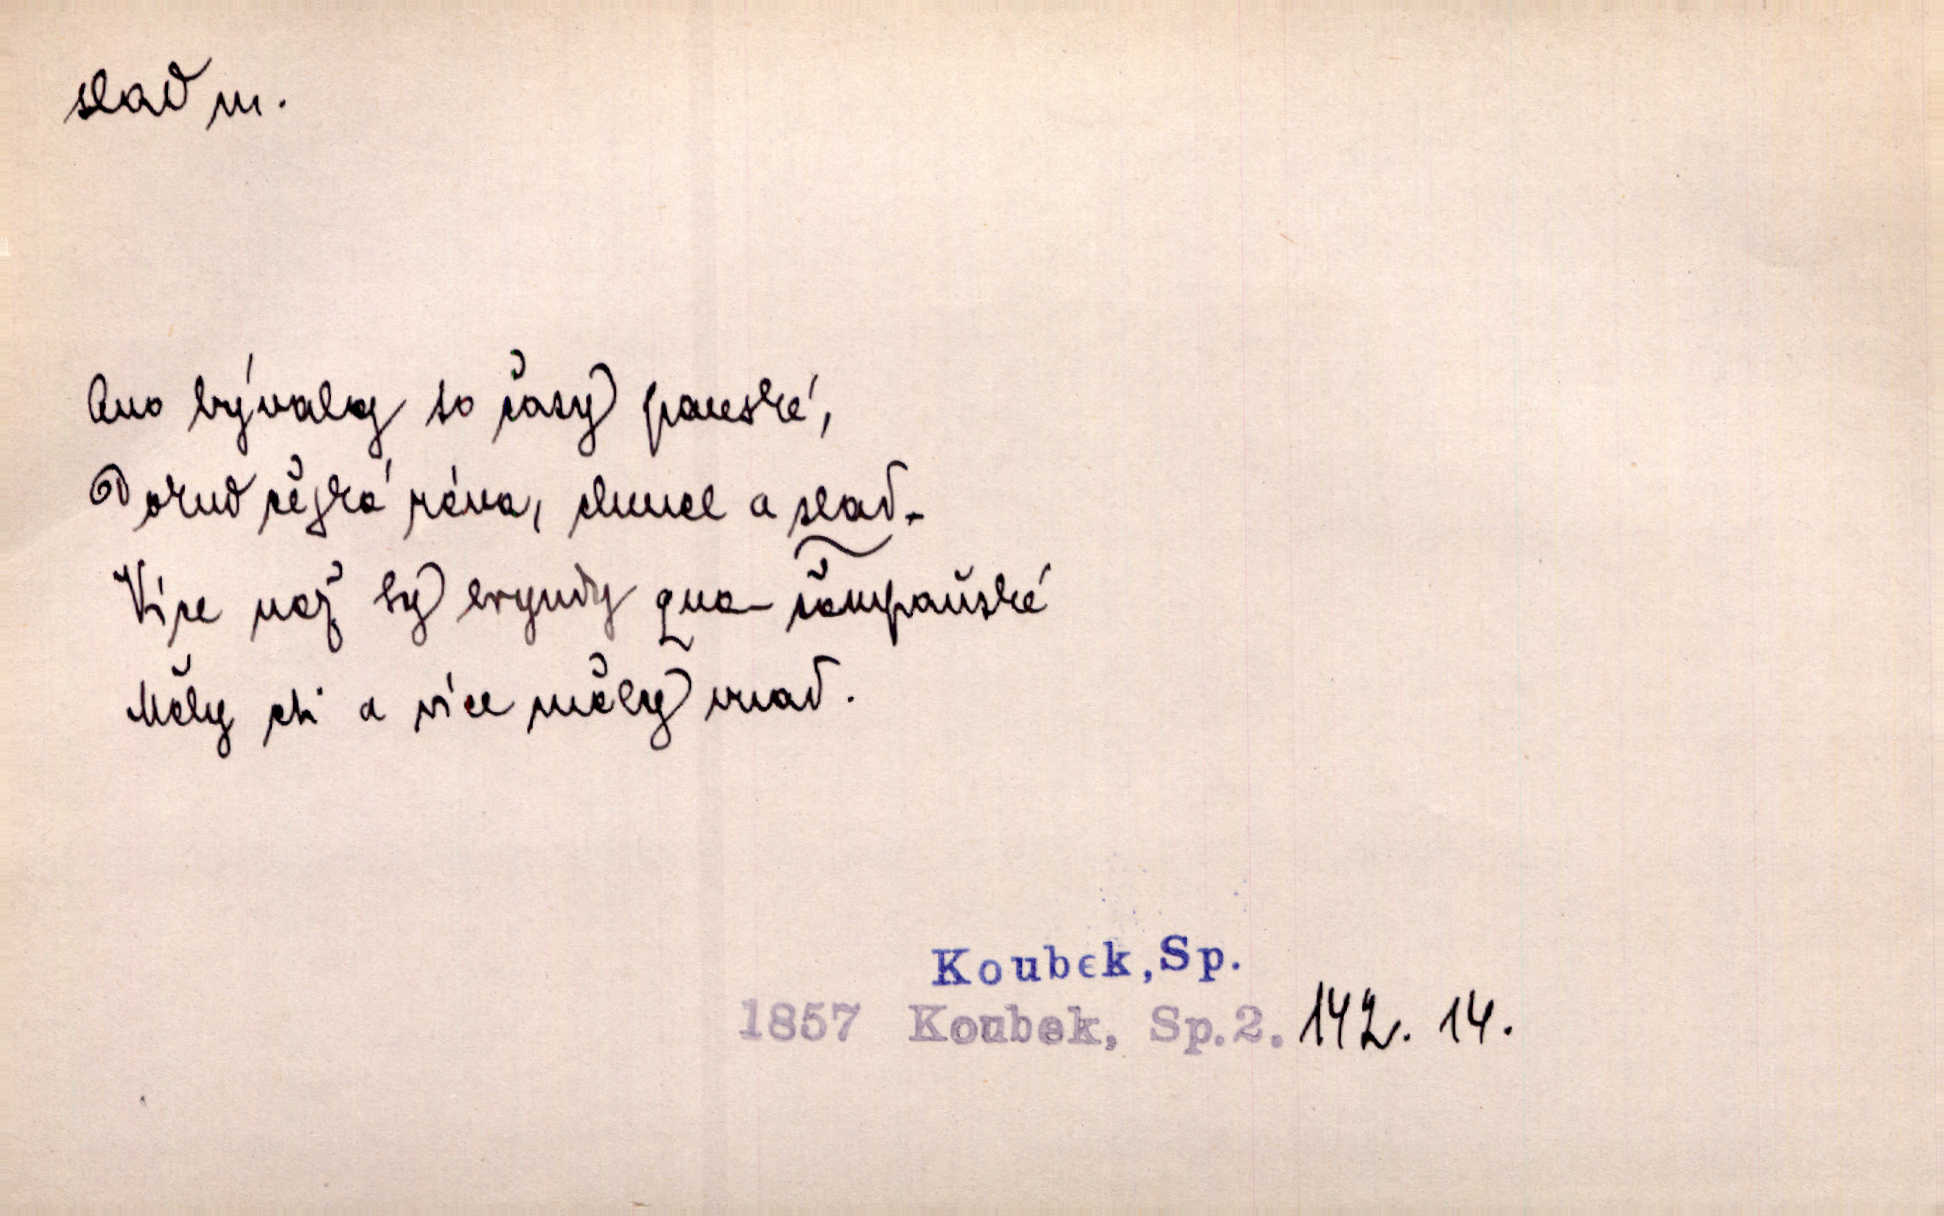 slad m.
Ano bývaly to časy panské,
Pokud céjká réva, chmel a slad
Více než by bryndy qua-čampaňské
Měly cti a více měly vnad.
Koubek, Sp.
1857 Koubek, Sp.2. 142. 14.